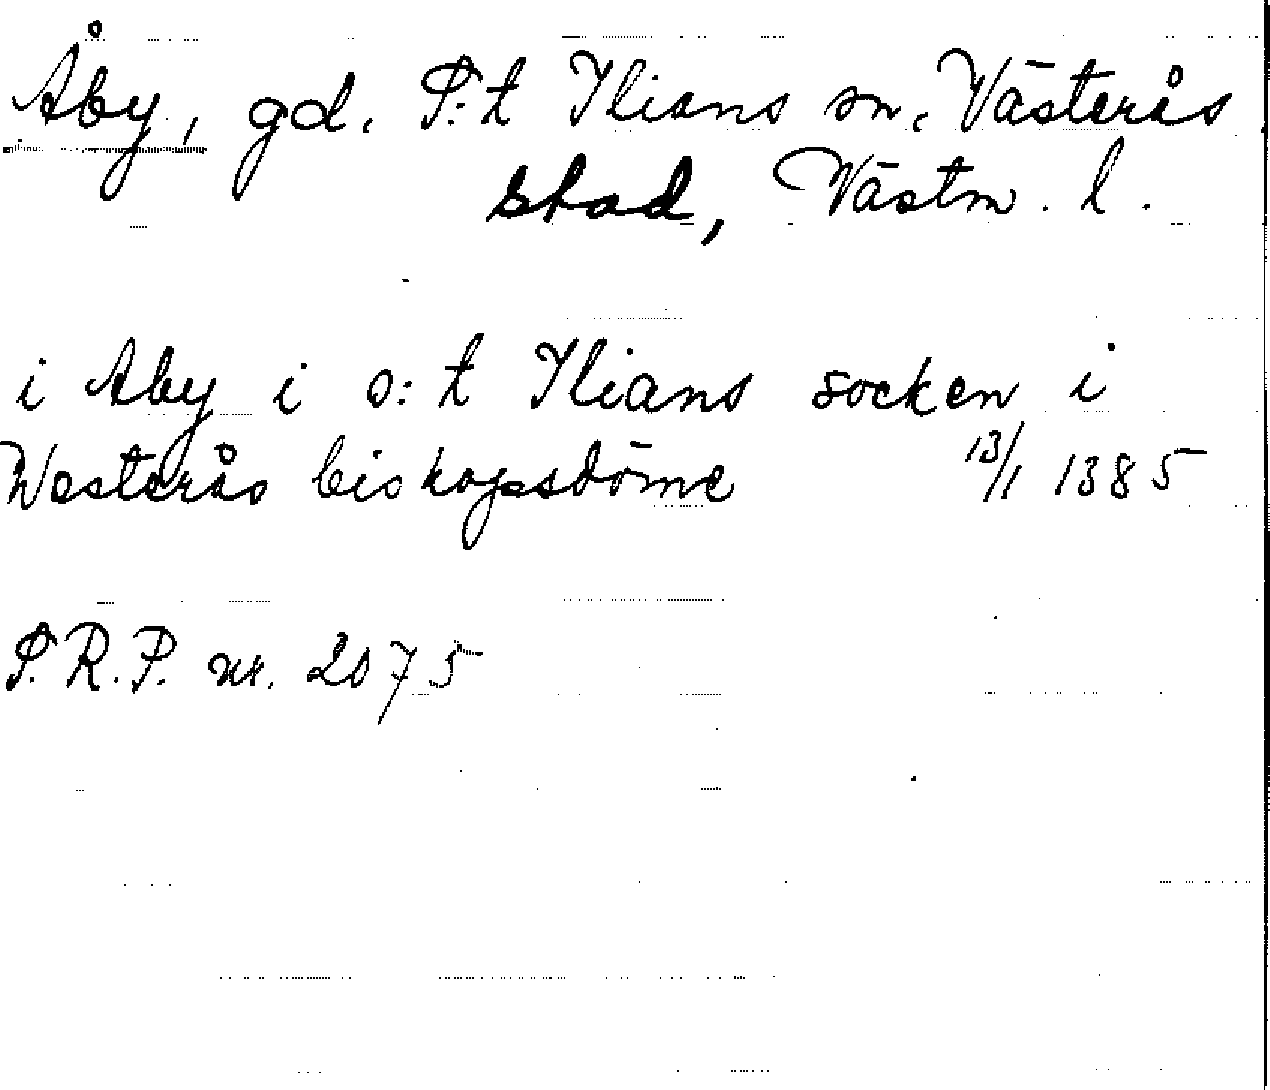 Åby, gd, S:t Ilians sn, Västerås
stad, Västm. l.
i Aby i s:t Ilians socken i
Westerås biskopsdöme 13/1 1385
S.R.P. nr. 2075